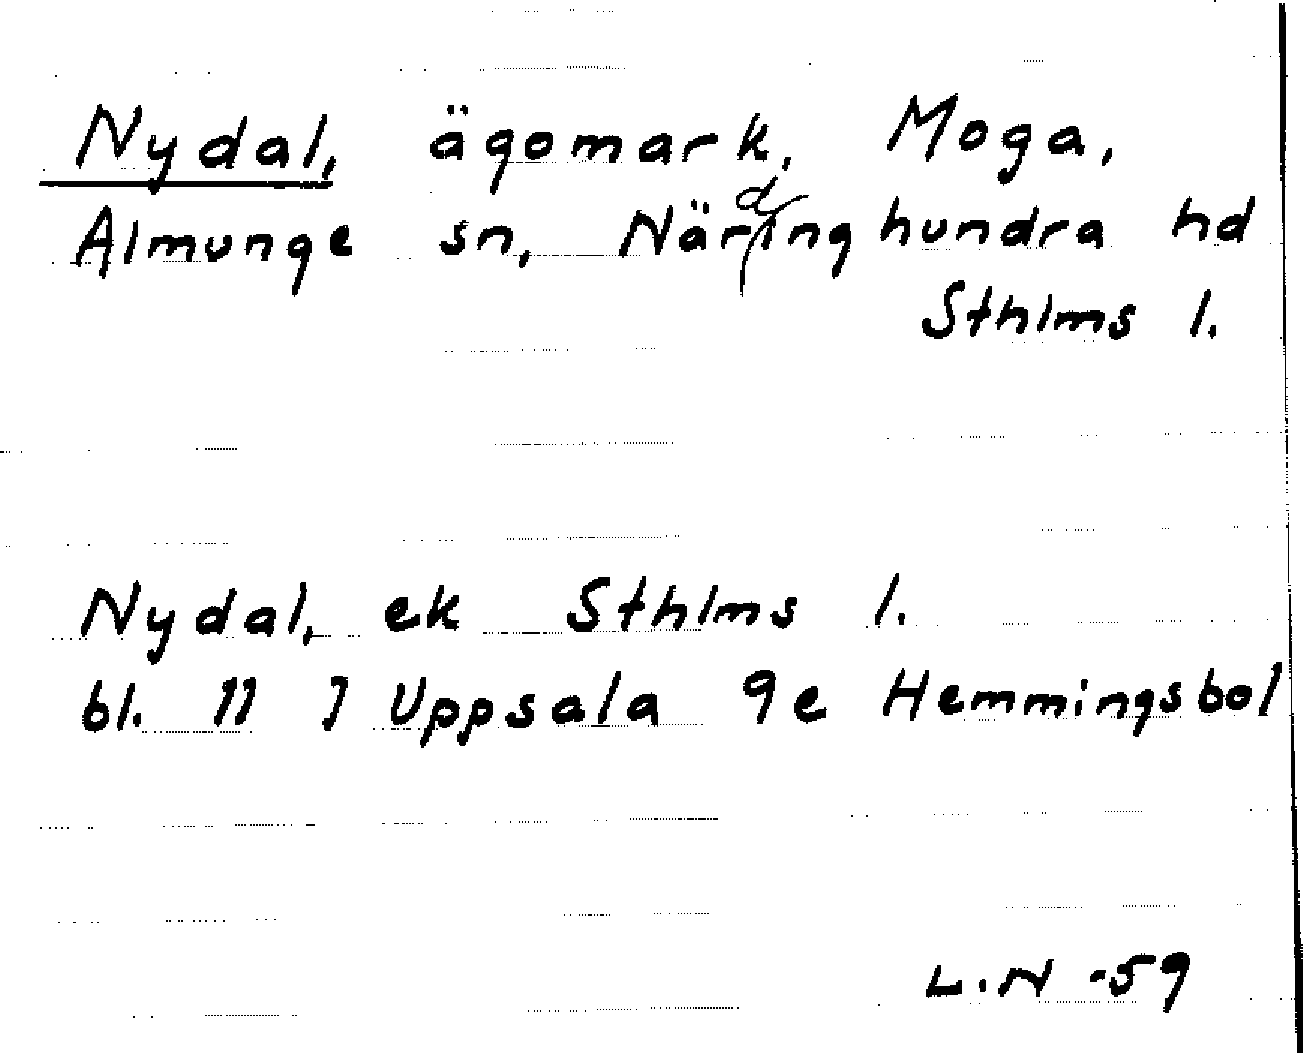 Nydal, ägomark, Moga,
Almunge sn, Närdinghundra hd
Sthlms l.
Nydal, ek Sthlms l.
bl. 11 I Uppsala 9e Hemmingsbol
L.N -59